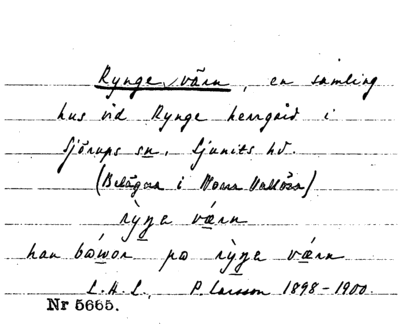 Rynge värn, en samling
hus vid Rynge herrgård i
Sjörups sn, Ljunits hd.
(Belägen i Norra Vallösa)
rỳŋa væ̀rn
han bǿwor pa rỳŋa væ̀rn
L.H.L., P. Larsson 1898-1900.
Nr 5665.